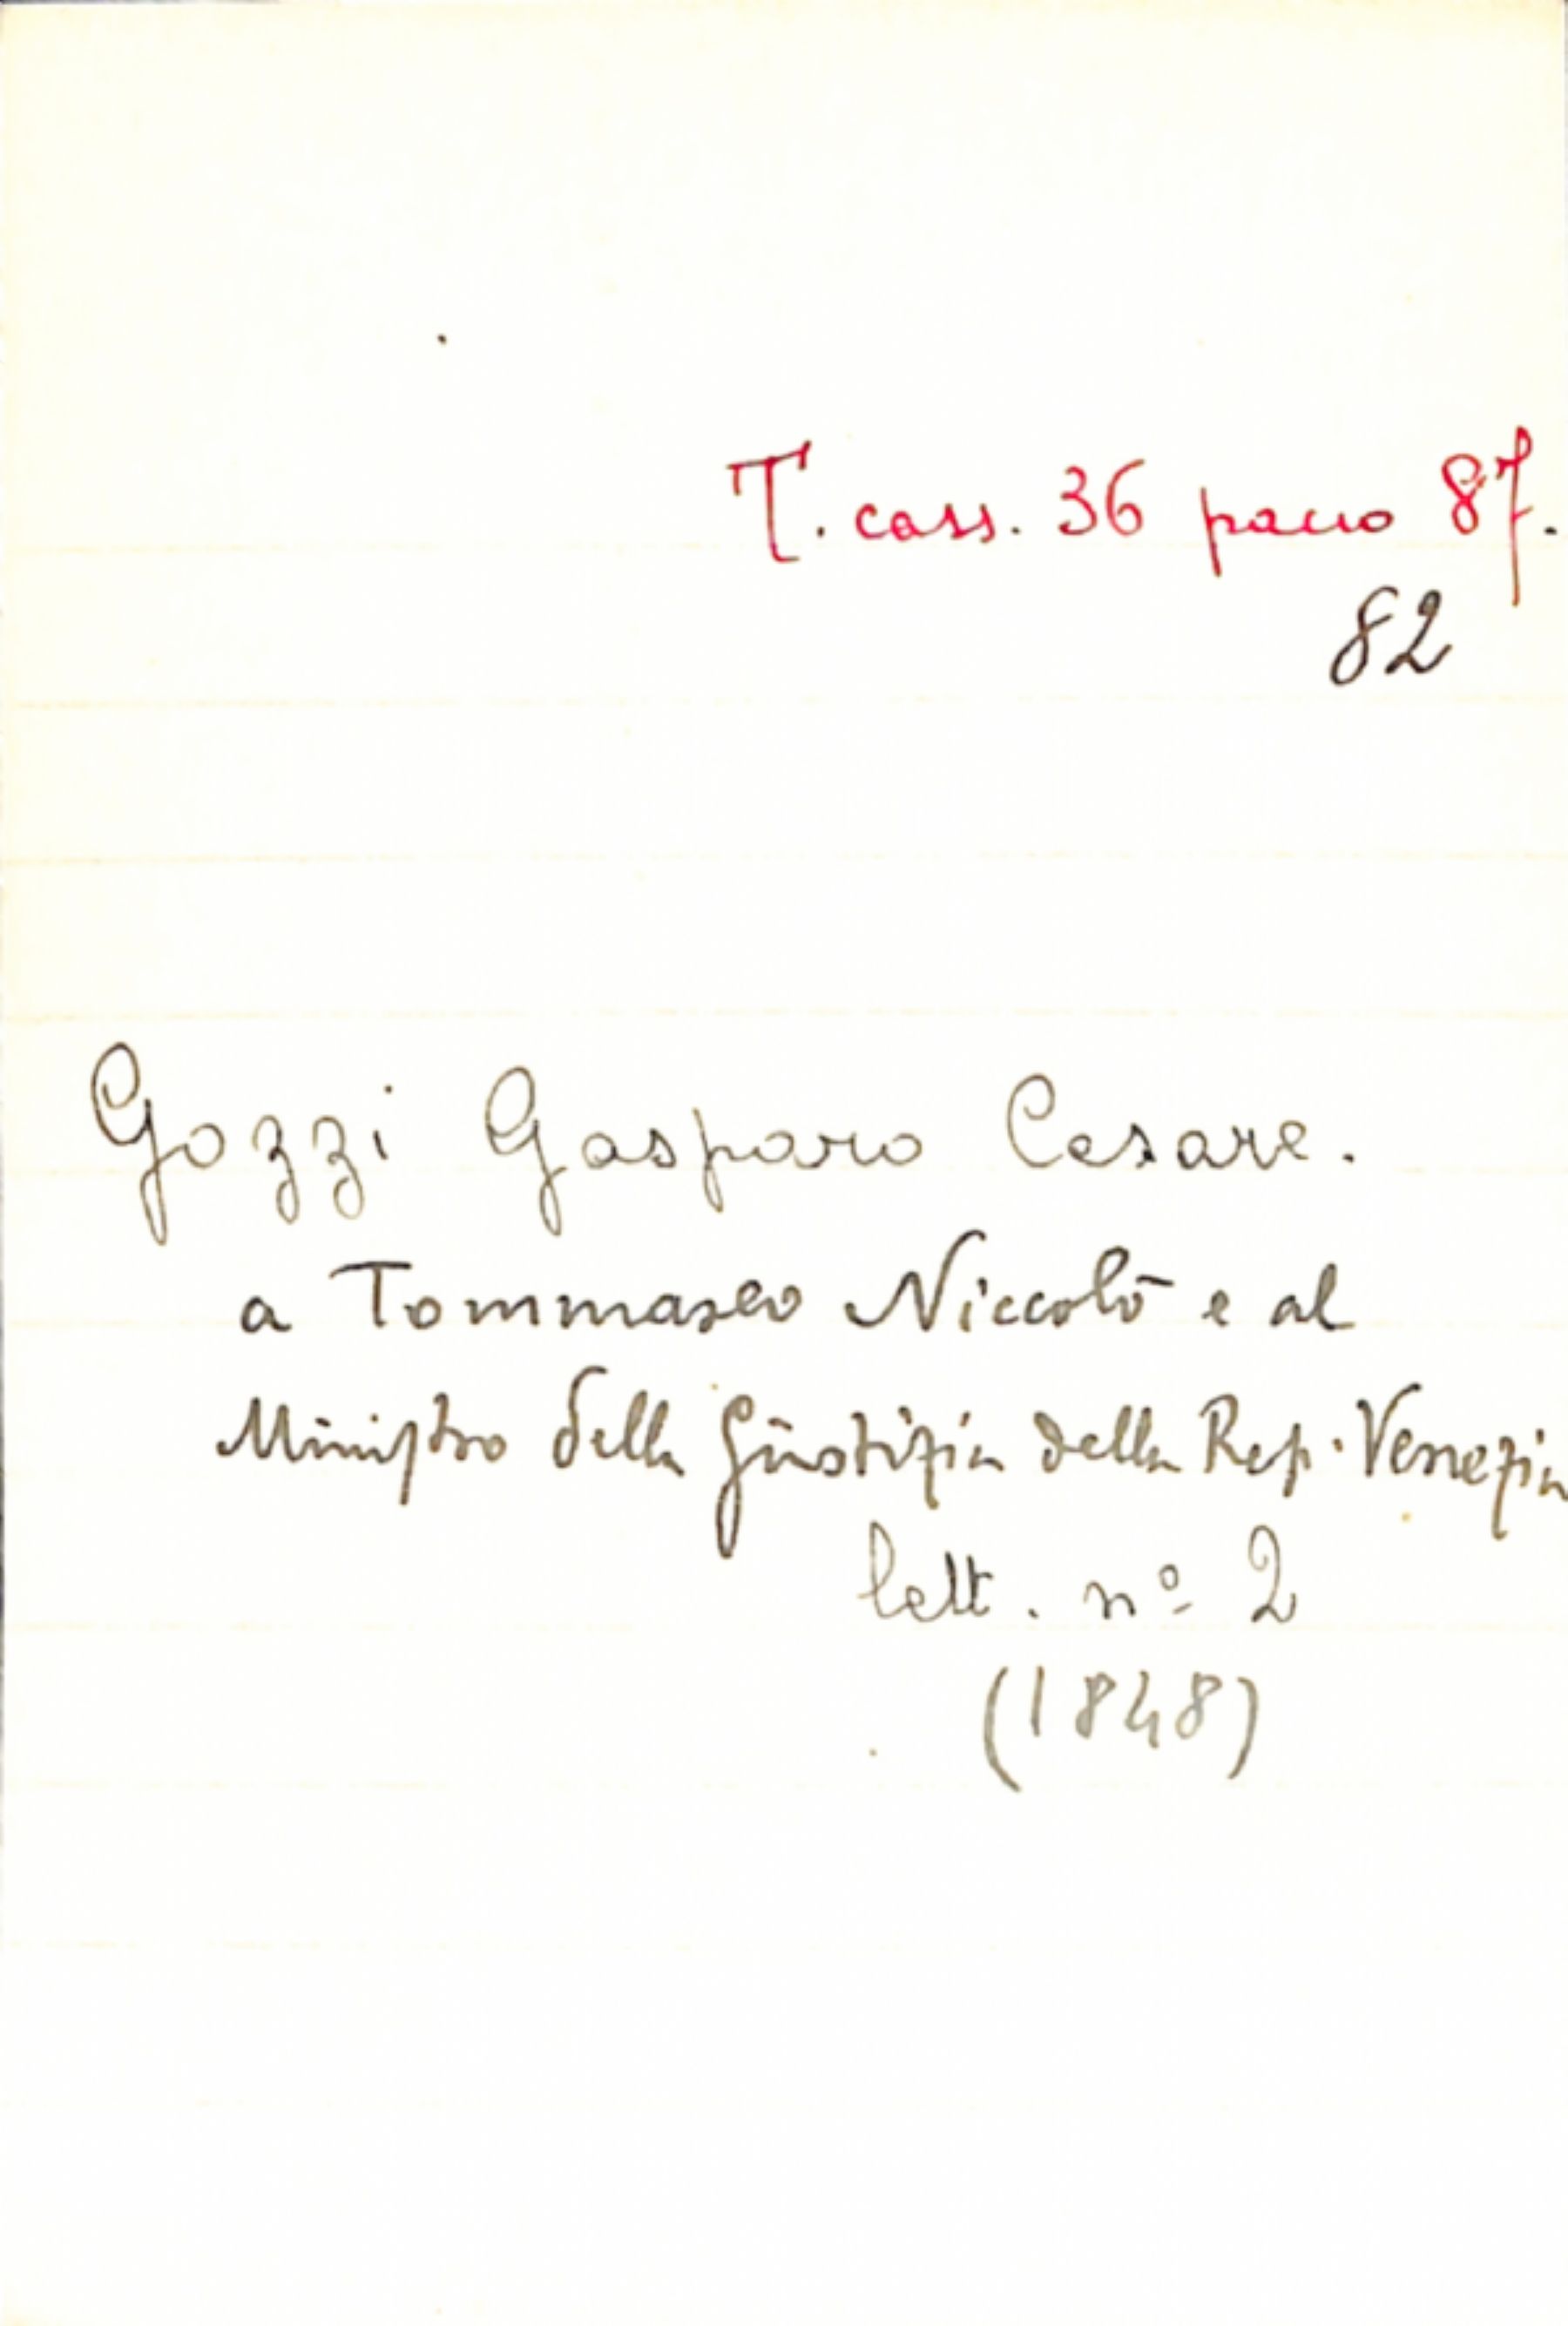 T. cass. 36 pacco 87.
82
Gozzi Gasparo Cesare.
a Tommaseo Niccolò e al
Ministro della Giustizia della Rep. Venezia
lett. nº 2
(1848)